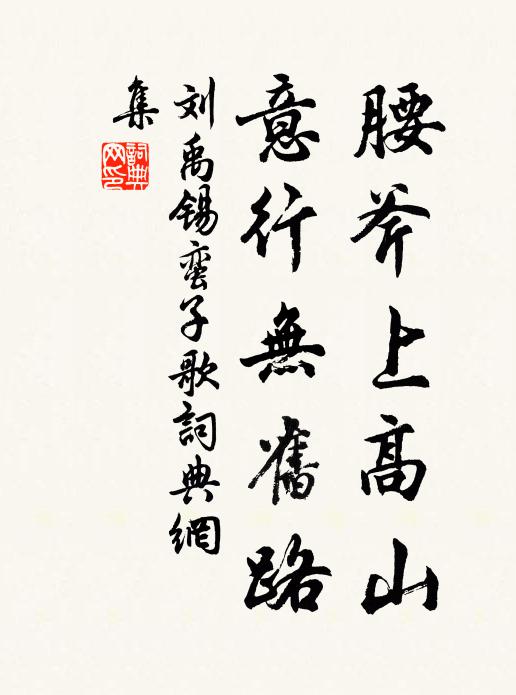 腰斧上高山
意行無舊路
刘禹锡蛮子歌詞典網
集
詞典
网印